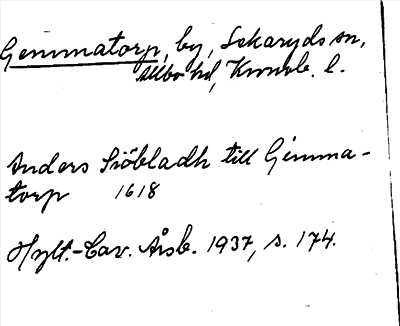 Gemmatorp, by, Sekaryds sn,
Allbo hd, Kronob. l.
Anders Siöbladh till Gimma-
torp 1618
Hylt.-Cav. Årsb. 1937, s. 174.